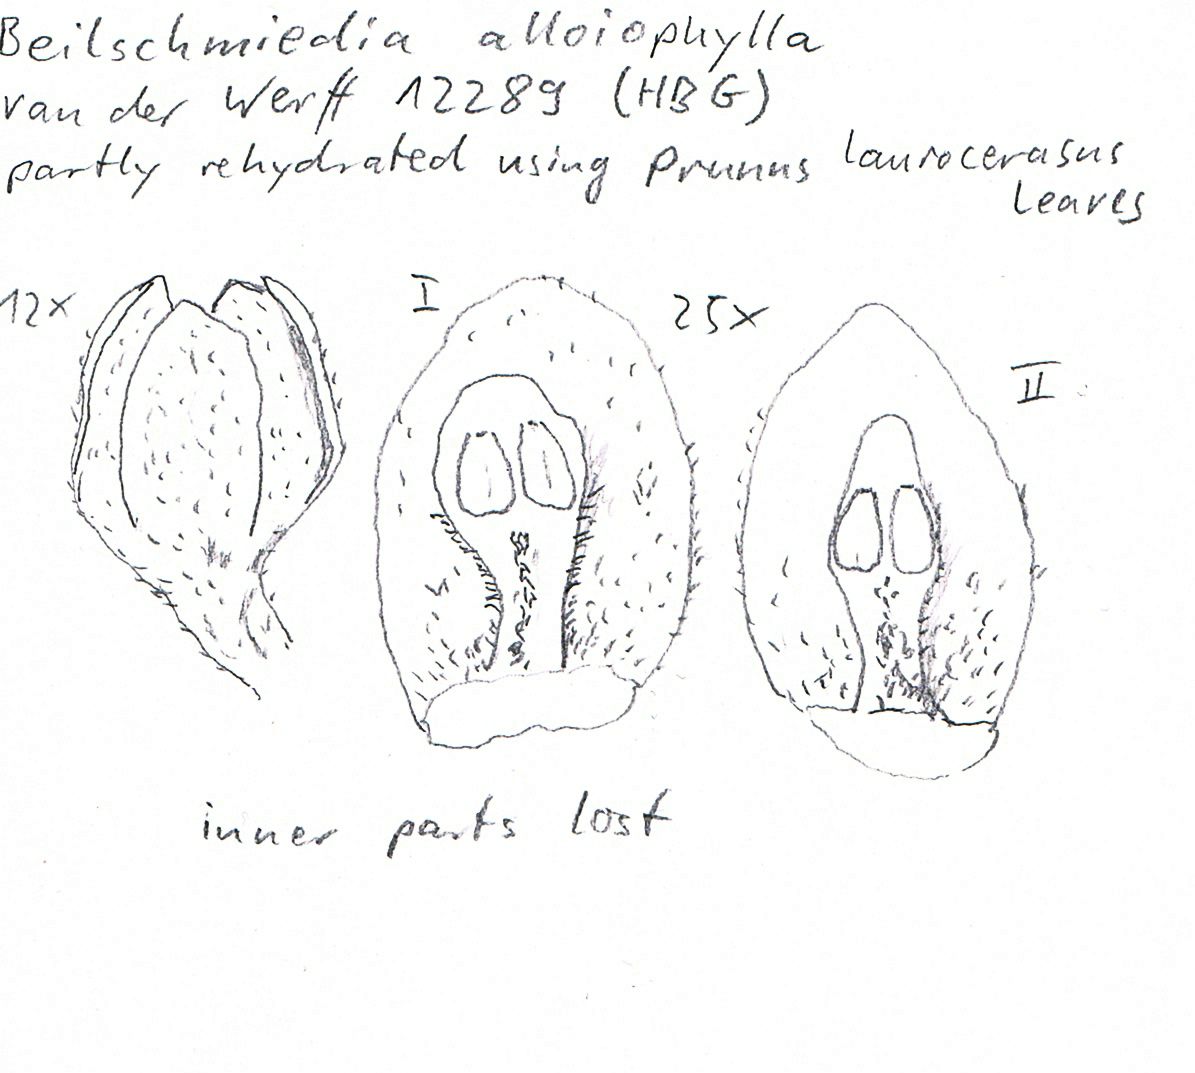 Beilschmiedia alloiophylla
van der Werff 12289 (HBG)
partly rehydrated using Prunus laurocerasus
leaves
12x
I
25x
II
inner parts lost